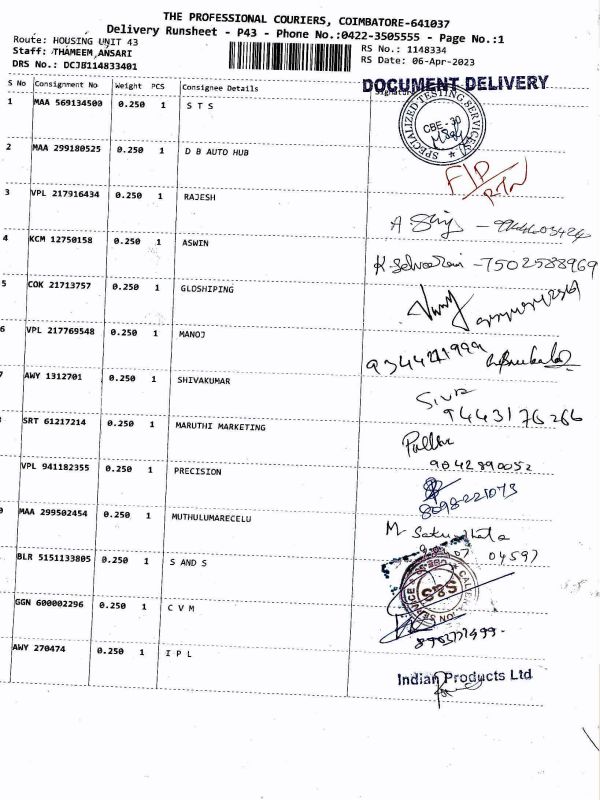 THE PROFESSIONAL COURIERS, COIMBATORE-641037
Delivery Runsheet - P43 - Phone No.:0422-3505555 - Page No.:1
Route: HOUSING UNIT 43
Staff: THAMEEM ANSARI
DRS No.: DCJB114833401
RS No.: 1148334
RS Date: 06-Apr-2023
DOCUMENT DELIVERY
S No Consignment No Weight PCS Consignee Details Signature
1 MAA 569134500 0.250 1 S T S
SPECIALIZED TESTING SERVICES
CBE - 30
2 MAA 299180525 0.250 1 D B AUTO HUB
3 VPL 217916434 0.250 1 RAJESH
4 KCM 12750158 0.250 1 ASWIN K. -7502588969
5 COK 21713757 0.250 1 GLOSHIPING
6 VPL 217769548 0.250 1 MANOJ
7 AWY 1312701 0.250 1 SHIVAKUMAR Siva
9443176266
SRT 61217214 0.250 1 MARUTHI MARKETING
9042890052
VPL 941182355 0.250 1 PRECISION
8098-221073
MAA 299502454 0.250 1 MUTHULUMARECELU M
04597
BLR 5151133805 0.250 1 S AND S
S&S
GGN 600002296 0.250 1 C V M
AWY 270474 0.250 1 I P L
Indian Products Ltd